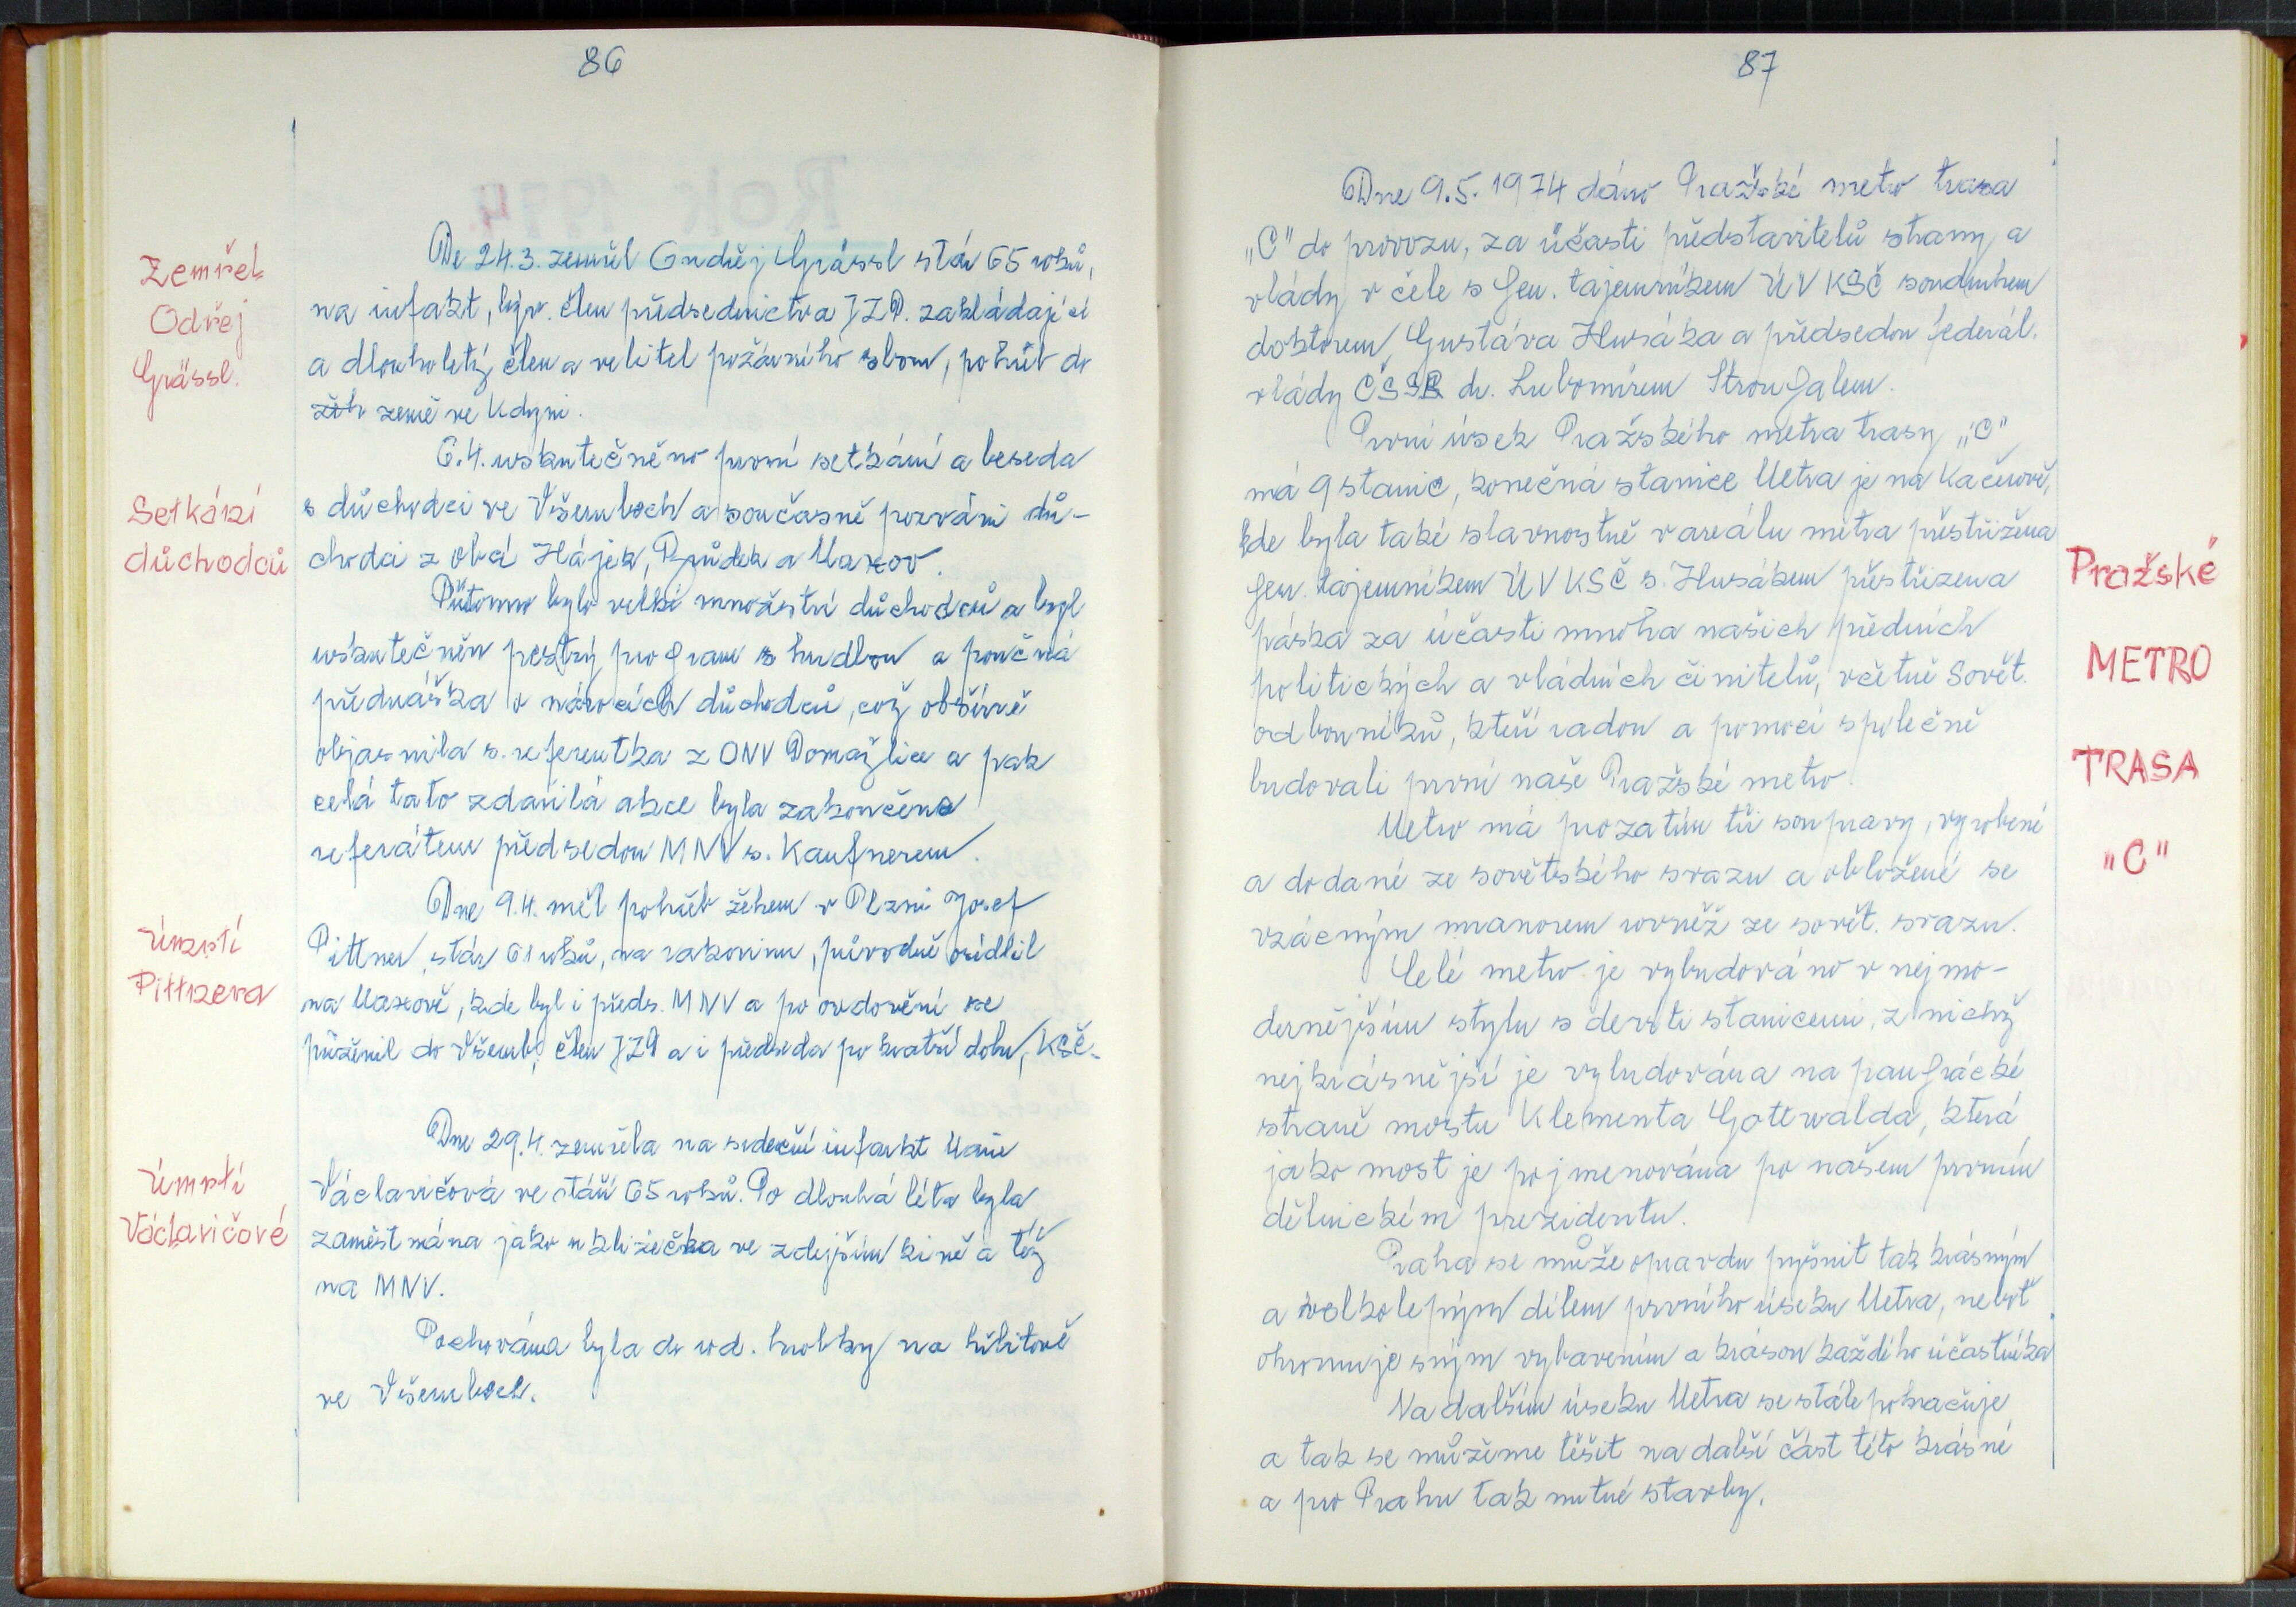 86
Zemřel
Odřej
Grässl.
De 24.3. zemřel Ondřej Grässl stár 65 roků,
na infakt, býv. člen předsednictva JZD. zakládající
a dlouholetý člen a velitel požárního sboru, pohřeb do
země ve Kdyni.
6.4. uskutečněno první setkání a beseda
Setkání
důchodců
s důchodci ve Všerubech a současně pozváni dů-
chodci z obcí Hájek, Brůdek a Maxov.
Přítomno bylo velké množství důchodců a byl
uskutečněn pestrý program s hudbou a poučná
přednáška o nárocích důchodců, což obšírně
objasnila s. referentka z ONV Domažlice a pak
celá tato zdařilá akce byla zakončena
referátem předsedou MNV s. Kaufnerem.
Úmrtí
Pittnera
Dne 9.4. měl pohřeb žehem v Plzni Josef
Pittner, stár 61 roků, na rakovinu, původně osídlil
na Maxově, kde byl i předs. MNV a po ovdovění se
přiženil do Všerub, člen JZD a i předseda po kratší dobu, KSČ.
Úmrtí
Václavičové
Dne 29.4. zemřela na srdeční infarkt Marie
Václavičová ve stáří 65 roků. Po dlouhá léta byla
zaměstnána jako uklizečka ve zdejším kině a též
na MNV.
Pochována byla do rod. hrobky na hřbitově
ve Všerubech.
87
Dne 9.5. 1974 dáno Pražské metro trasa
„C" do provozu, za účasti představitelů strany a
vlády v čele s gen. tajemníkem ÚV KSČ soudruhem
doktorem Gustáva Husáka a předsedou federál.
vlády ČSSR dr. Lubomírem Štrougalem.
První úsek Pražského metra trasy „C"
má 9 stanic, konečná stanice Metra je na Kačerově,
kde byla také slavnostně v areálu metra přestřižena
gen. tajemníkem ÚV KSČ s. Husákem přestřižena
páska za účasti mnoha našich předních
politických a vládních činitelů, včetně Sovět.
odborníků, kteří radou a pomocí společně
budovali první naše Pražské metro.
Pražské
METRO
TRASA
„C"
Metro má prozatím tři soupravy, vyrobené
a dodané ze sovětského svazu a obložené se
vzácným mramorem rovněž ze sovět. svazu.
Celé metro je vybudováno v nejmo-
dernějším stylu s devíti stanicemi, z nichž
nejkrásnější je vybudována na pangrácké
straně mostu Klementa Gottwalda, která
jako most je pojmenována po našem prvním
dělnickém prezidentu.
Praha se může opravdu pyšnit tak krásným
a velkolepým dílem prvního úseku Metra, neboť
ohromuje svým vybavením a krásou každého účastníka
Na dalším úseku Metra se stále pokračuje
a tak se můžeme těšit na další část této krásné
a pro Prahu tak nutné stavby.